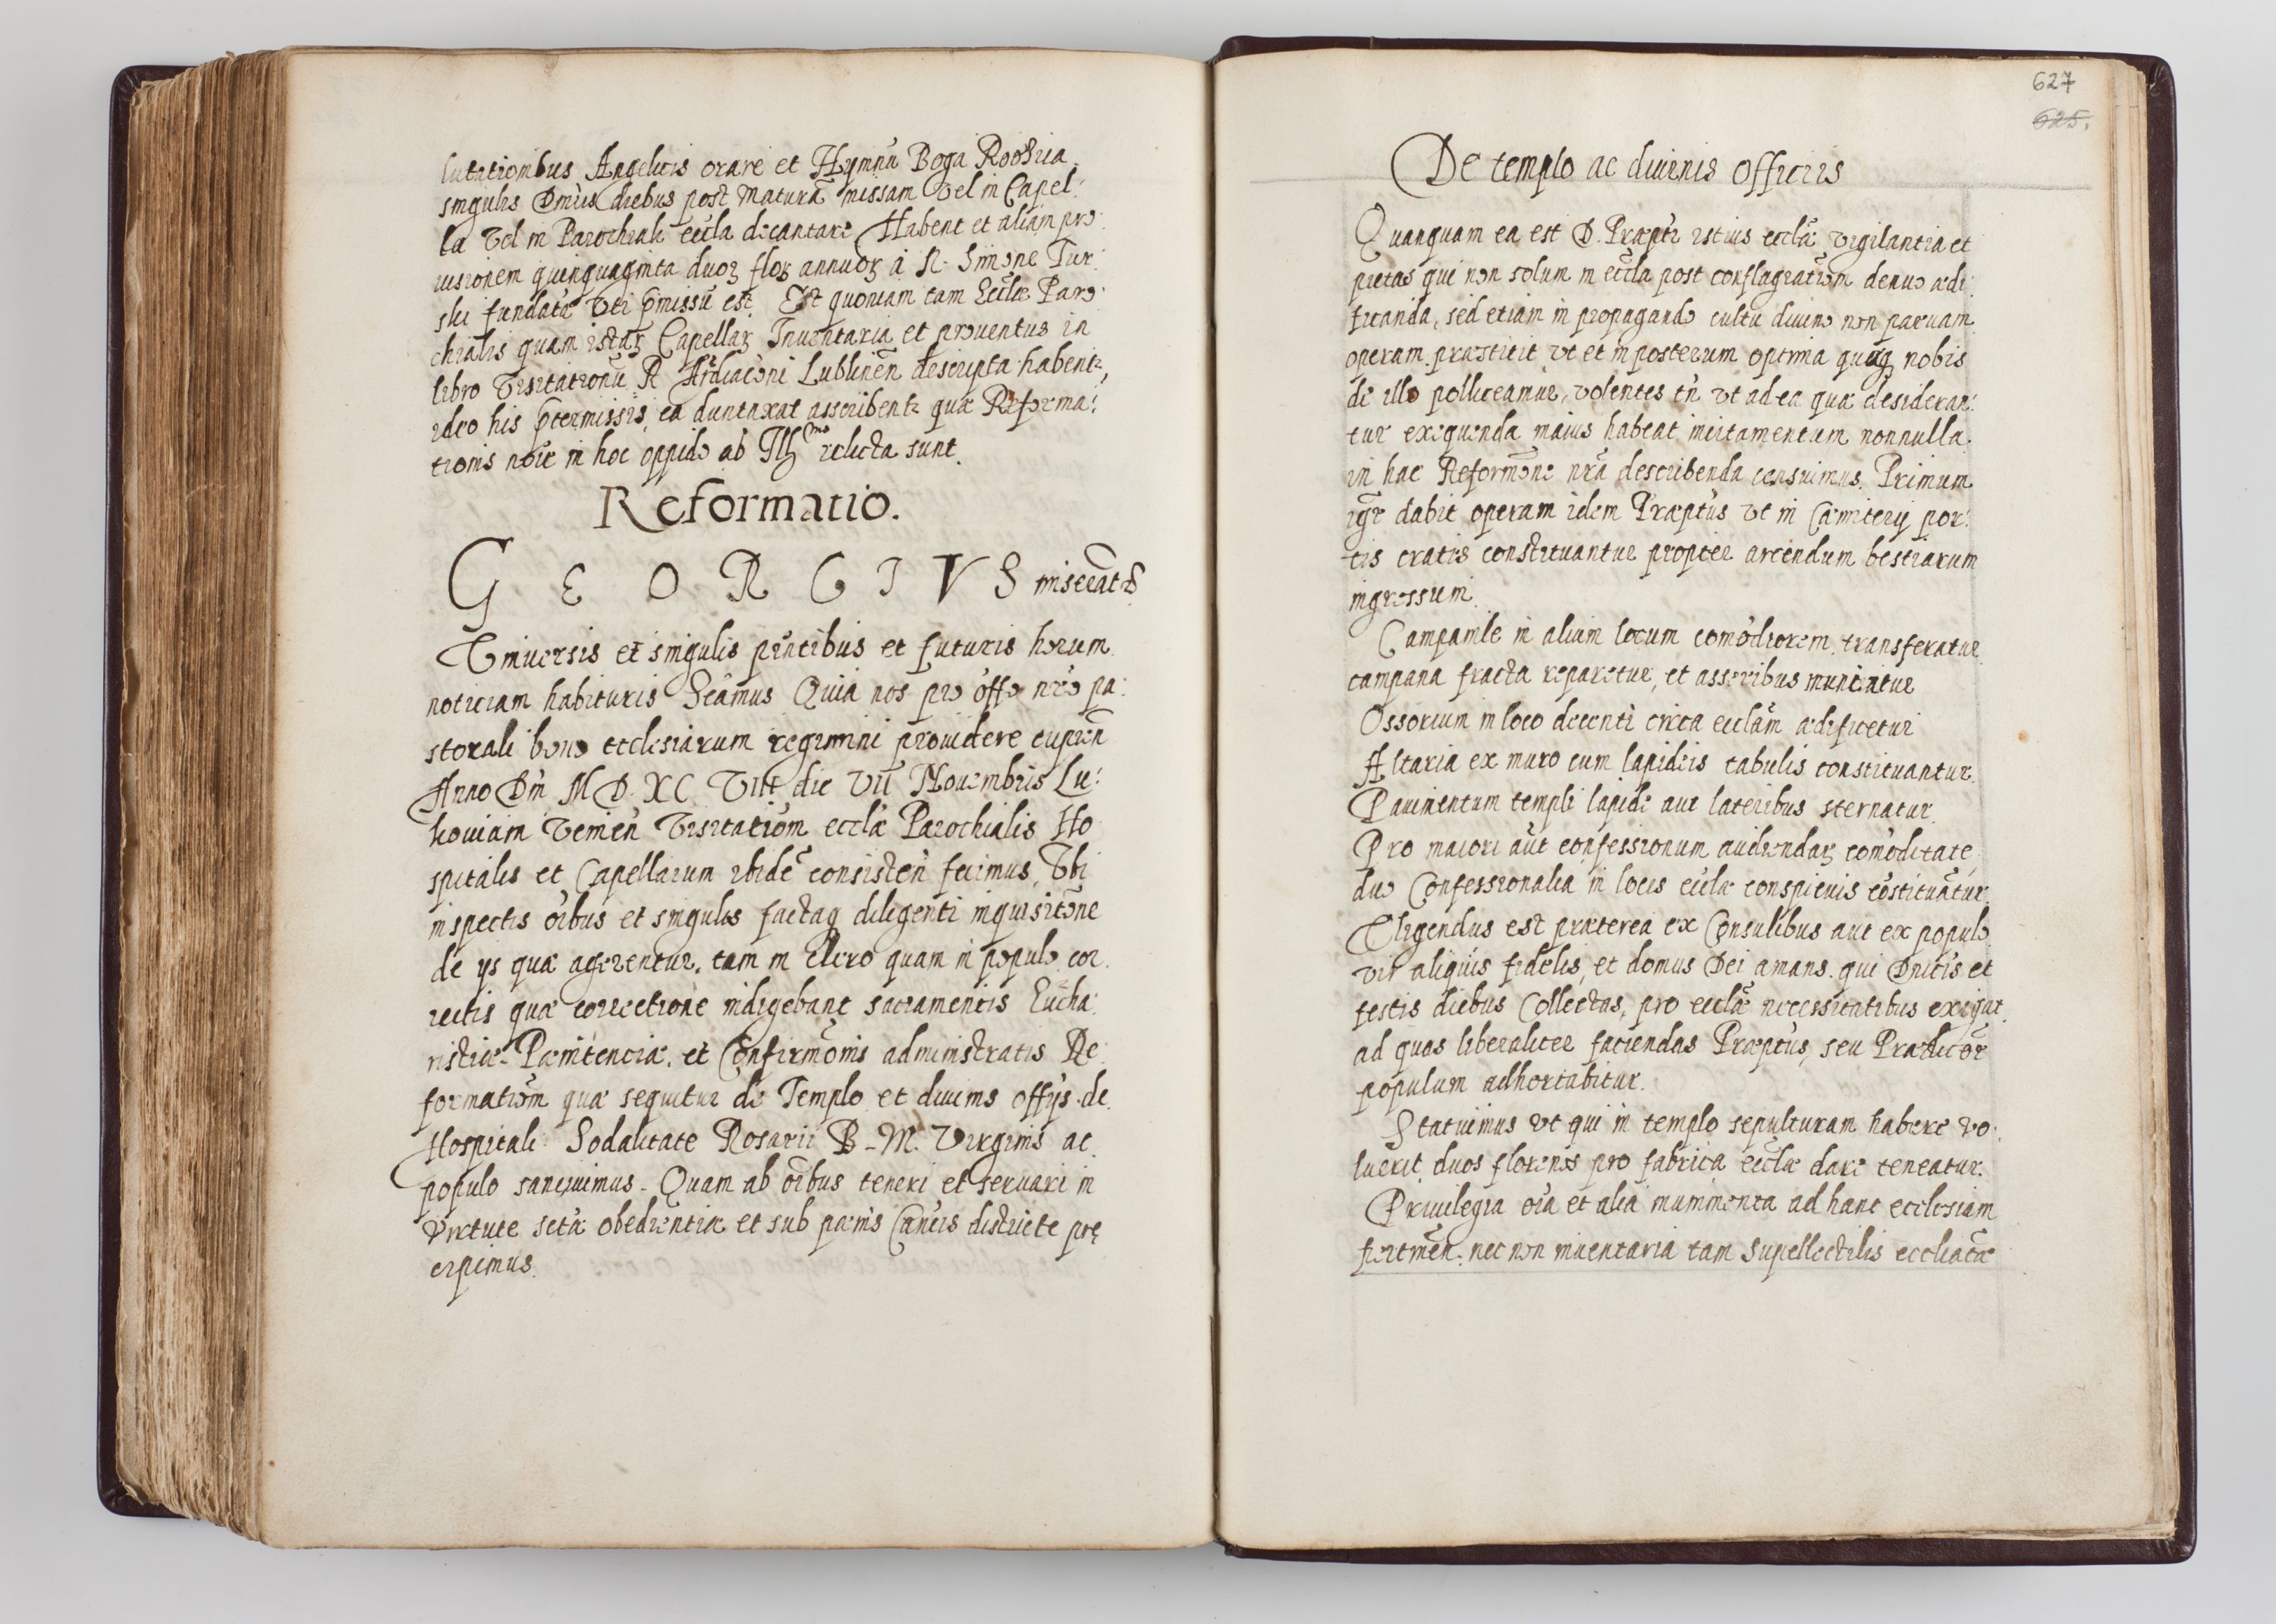 lutationibus Angelicis orare et Hymnũ Boga Rodzica
singulis Dnĩcis diebus post maturã missam vel in Capel:
la vel in Parochiali eccla decantare Habent et aliam pro:
uisionem quinquaginta duoꝝ floꝝ annuoꝝ à N. Simone Tur:
ski fundatã vti p̃missũ est. Et quoniam tam Ecclæ Paro:
chialis quam istaꝝ Capellaꝝ Inuentaria et prouentus in
libro Visitationũ R Archidiaconi Lublineñ descripta habentꝛ,
ideo his p̃termissis, ea duntaxat asscribentꝛ quæ Reforma:
tionis noĩe in hoc oppido ab Illmo relicta sunt.
Reformatio.
GEORGIVS miserãt &
Vniuersis et singulis pñtibus et futuris horum
noticiam habituris Scãmus Quia nos pro offo nro pa:
storali bono ecclesiarum regimini prouidere cupien
Anno Dñi M D. XC VIII die VII Nouembris Lu:
kouiam venieñ Visitatiõm ecclæ Parochialis Ho
spitalis et Capellarum ibidẽ consisteñ fecimus, Vbi
inspectis oĩbus et singulis factaq diligenti inquisitõne
de ijs quæ agerentur, tam in Clero quam in populo cor
rectis quæ correctione indigebant sacramentis Eucha:
ristiæ Pœnitenciæ, et Confirmõnis administratis Re:
formatiõm quæ sequitur de Templo et diuinis offijs de
Hospitali Sodalitate Rosarii B. M. Virginis ac
populo sanciuimus. Quam ab oĩbus teneri et seruari in
virtute sctæ obedientiæ et sub pœnis Canĩcis districte prę
cipimus.
627
625.
De templo ac diuinis officiis
Quanquam ea est D. Præpti istius ecclæ vigilantia et
pietas qui non solum in eccla post conflagratiõm denuo ædi
ficanda, sed etiam in propagando cultu diuino non paruam
operam præstitit vt et in posterum optima quæq nobis
de illo polliceamur, volentes tñ vt ad ea quæ desideran:
tur exequenda maius habeat incitamentum nonnulla
in hac Reformõne nra describenda censuimus. Primum
igr dabit operam idem Præptus vt in Cæmiterij por:
tis cratis constituantur propter arcendum bestiarum
ingressum.
Campanile in alium locum comõdiorem transferatur
campana fracta reparetur, et asseribus muniatur
Ossorium in loco decenti circa ecclam ædificetur
Altaria ex muro cum lapideis tabulis constituantur.
Pauimentum templi lapide aut lateribus sternatur.
Pro maiori aut confessionum audiendaꝝ comõditate
duo Confessionalia in locis ecclæ conspicuis cõstituãtur.
Eligendus est præterea ex Consulibus aut ex populo
vir aliquis fidelis, et domus Dei amans, qui Dnĩcis et
festis diebus Collectas, pro ecclæ necessitatibus exigat
ad quas liberaliter faciendas Præptus, seu Prædicõr
populum adhortabitur.
Statuimus vt qui in templo sepulturam habere vo:
luerit, duos florenos pro fabrica ecclæ dare teneatur.
Priuilegia oĩa et alia munimenta ad hanc ecclesiam
pertineñ: nec non inuentaria tam Supellectilis eccliãcæ